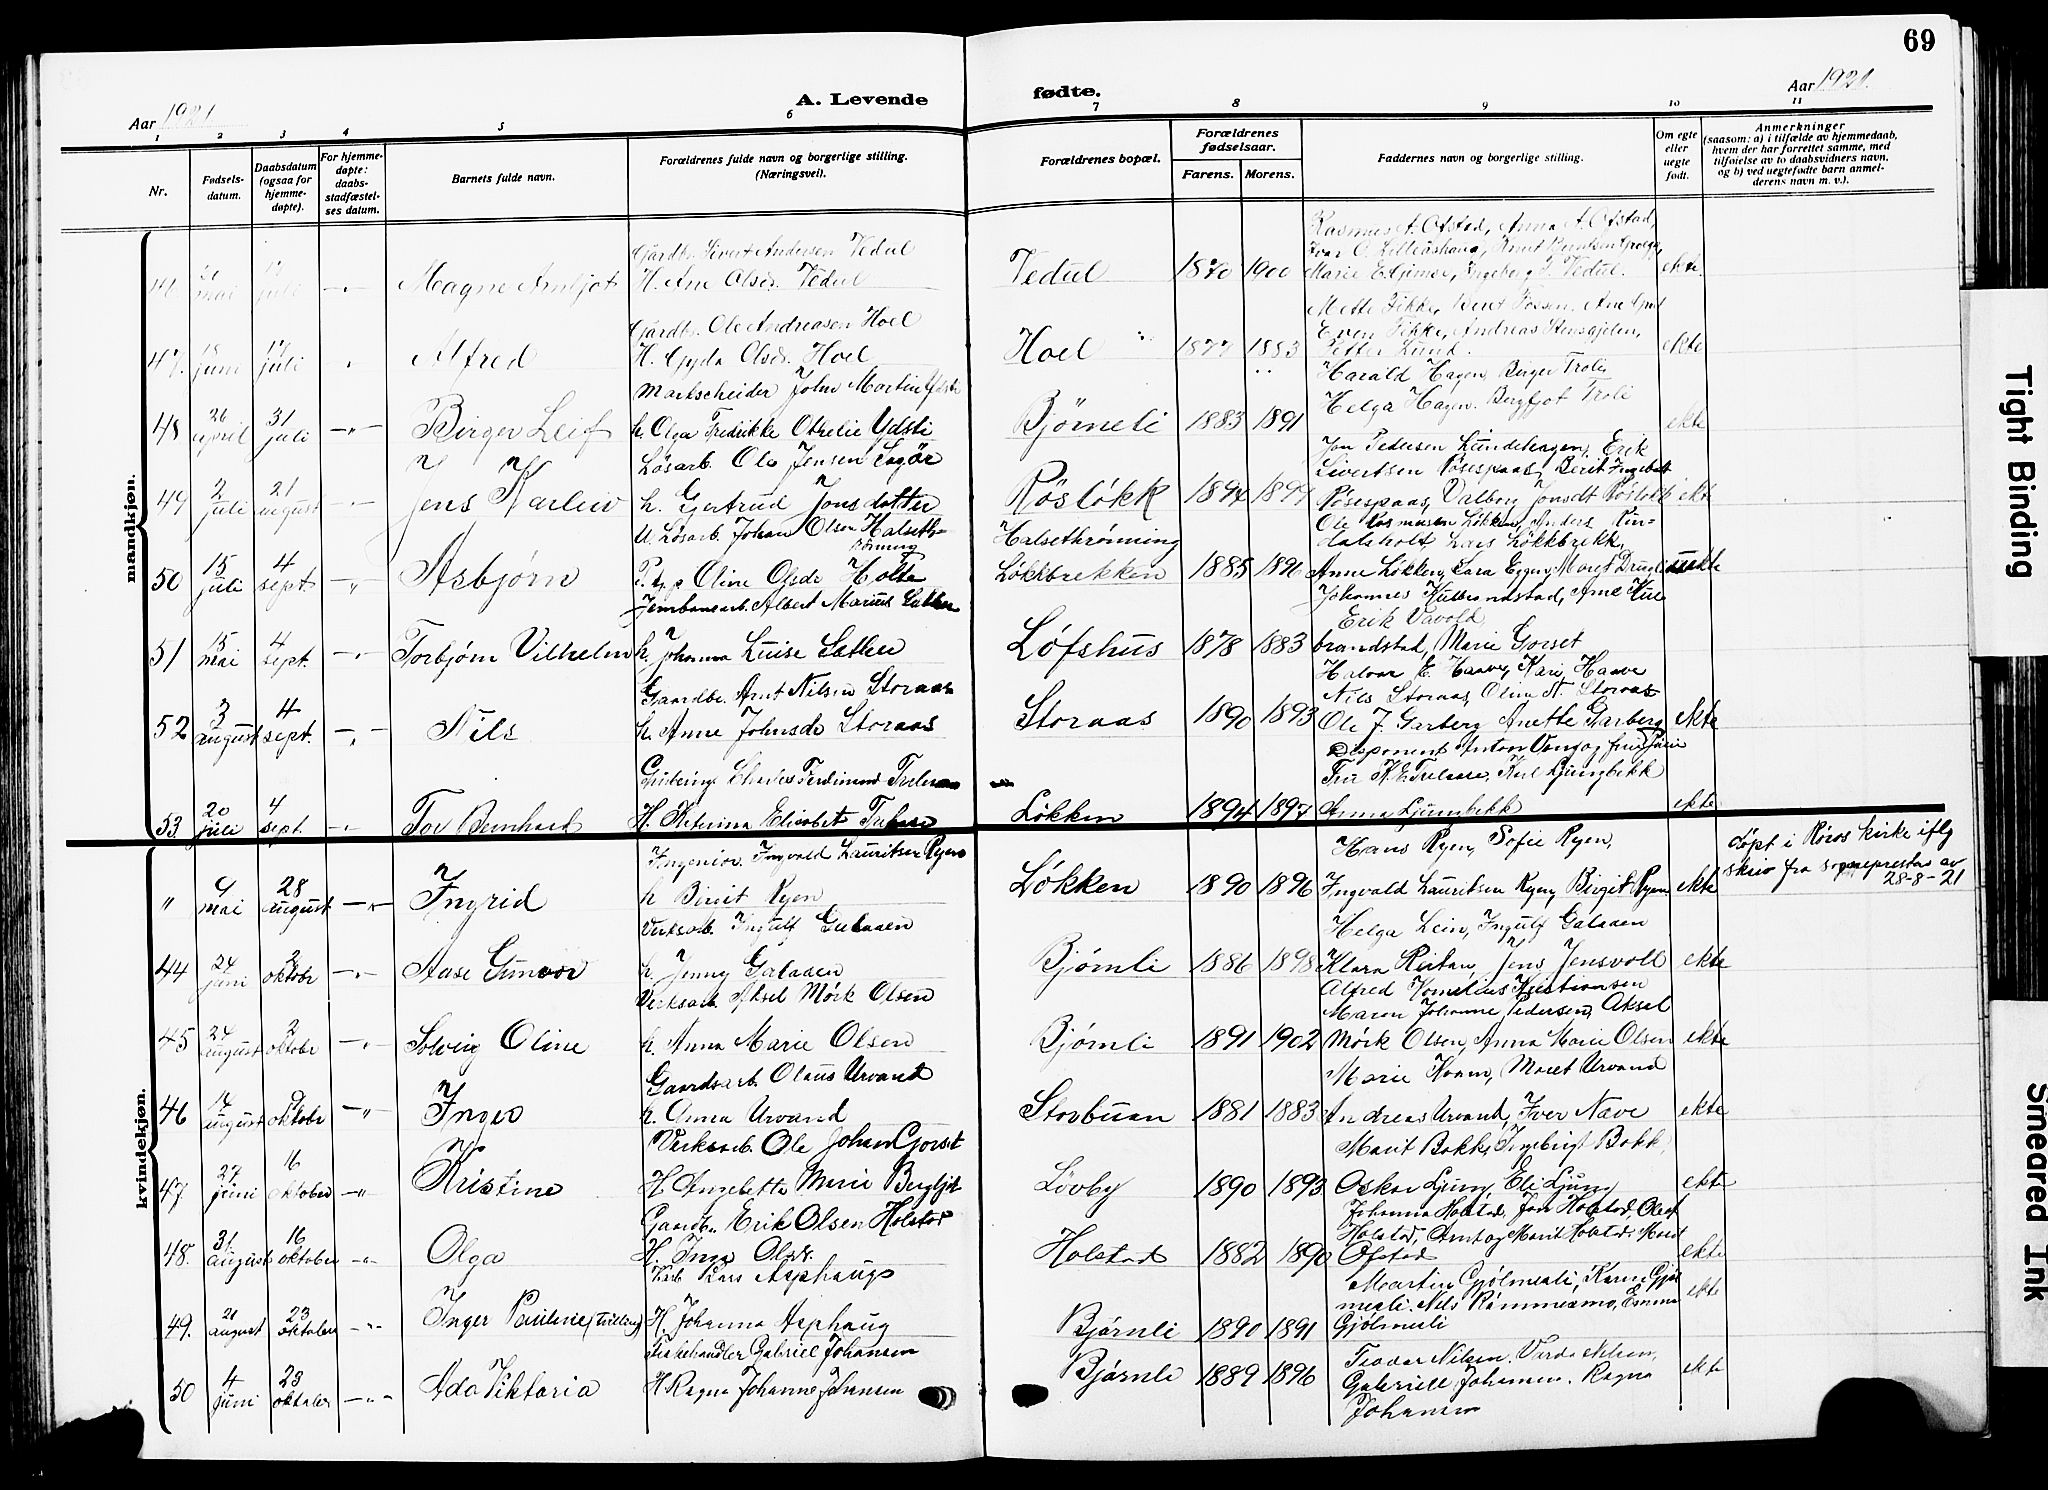 69
Aar 1921
A. Levende fødte.
Aar 1921.
1 2 3 4 5 6 7 8 9 10 11
Nr.
Fødsels-
datum.
Daabsdatum
(ogsaa for
hjemme-
døpte).
For hjemme-
døpte:
daabs-
stadfæstel-
ses datum.
Barnets fulde navn.
Forældrenes fulde navn og borgerlige stilling.
(Næringsvei).
Forældrenes bopæl.
Forældrenes
fødselsaar.
Farens. Morens.
Faddernes navn og borgerlige stilling.
Om egte
eller
uegte
født.
Anmerkninger
(saasom: a) i tilfælde av hjemmedaab,
hvem der har forrettet samme, med
tilføielse av to daabsvidners navn,
og b) ved uegtefødte barn anmel-
derens navn m. v.).
mandkjøn.
mai juli Magne
Gårdbr. Sivert Andersen Vedul
H. Ane Olsd. Vedul
Vedul 1870 1900
Rasmus A. Ofstad, Anna A. Ofstad,
Ingeberg S. Vedul. ekte
47. juni juli Alfred
Gårdbr. Ole Andreasen Hoel
H. Gyda Olsd. Hoel
Hoel 1877 1883
Mette Fikke, Berit Fossen, Ane
Even Fikke, Andreas Stensgjelen,
Petter Lund. ekte
48 26 april 31 juli Birger Leif
Markscheider John Martin Ydsti
h. Olga Fredrikke Othelie Ydsti
Bjørneli 1883 1891
Harald Hagen, Birger Troli
Helga Hagen. Bergfjot Troli
ekte
49 2 juli 21 august Jens Karleiv
Løsarb. Ole Jensen Sagør
h. Gertrud Jonsdotter
Røsløkk 1894 1897
Jon Pedersen Lundehagen, Erik
Sivertsen Røsespaas, Berit Ingebet
Røsespaas, Valborg Jonsdt Røsløkk ekte
50 15 juli 4 sept. Asbjørn
U. Løsarb. Johan Olsen Halseth-
rønning
P. Oline Olsdr Holte
Halsethrønning
Løkkbrekken 1885 1896
Ole Rasmussen Løkken, Anders Rin-
dalsholt, Lars Løkkbrekk,
Anne Løkken, Sara Eggen, Maret uekte
51 15 mai 4 sept. Torbjørn Vilhelm
Jernbanearb. Albert Marius Sæther
h. Johanna Luise Sæther
Løfshus 1878 1883
Johannes Hulbrandstad, Arne Hul
Erik Vavold
brandstad, Marie Gorset
52 3 august 4 sept. Nils
Gaardbr. Arnt Nilsen Storaas
h. Anne Johnsdr Storaas
Storaas 1890 1893
Halvor E. Haave, Kari Haave
Nils Storaas, Oline N. Storaas
Ole J. Garberg Anette Garberg ekte
53 20 juli 4 sept. Tov Bernhard
Charles Ferdinand
H. Katerina Elisabet
Løkken 1894 1897
Disponent Anton
Karl Ljungbekk
Anna Ljungbekk ekte
kvindekjøn.
" 9 mai 28 august Ingrid
Ingeniør Ingvald Lauritsen Ryen
h Birgit Ryen
Løkken 1890 1896
Hans Ryen, Sofie Ryen,
Ingvald Lauritsen Ryen, Birgit Ryen ekte
døpt i Røros kirke iflg
skriv fra sognepresten av
28-8-21
44 24 juni 2 oktobr Aase Gunvor
Verksarb. Ingulf Galaaen
h. Jenny Galaaen
Bjørnli 1886 1898
Helga Lein, Ingulf Galaaen
Klara Ristan, Jens Jensvoll ekte
45 24 august 2 oktobr Solveig Oline
Verksarb Aksel Mørk Olsen
h. Anna Marie Olsen
Bjørnli 1891 1902
Alfred Kornelius Kristiansen
Maren Johanne Pedersen, Aksel
Mørk Olsen, Anna Marie Olsen ekte
46 14 august 9 oktobr Inger
Gaardsarb. Olaus Urvand
h. Anna Urvand
Storbuan 1881 1883
Marie Kvam, Maret Urvand
Andreas Urvand, Iver Næve ekte
47 27 juni 16 oktober Kristine
Verksarb. Ole Johan Gorset
H Angebette Marie Bergljot
Løvby 1890 1893
Marit Bakk, Ingebrigt Bakk,
Oskar Ljung, Eli Ljung ekte
48. 31 august 16 oktober Olga
Gaardbr. Erik Olsen Holstad
H. Inga Olsdr.
Holstad 1882 1890
Johanna Holstad, Jon Holstad, Oluf
Holstad, Arnt og Marit Holstad. Marit
Ofstad ekte
49. 21 august 23 oktober Inger Pauline (Tvilling)
Lars Asphaug
H. Johanna Asphaug
Bjørnli 1890 1891
Martin Gjølmesli, Karen Gjøl
mesli. Nils Rømmesmo, Emma
Gjølmesli ekte
50 4 juni 23 oktober Ada Viktoria
Fiskehandler Gabriell Johansen
H Ragna Johanne Johansen
Bjørnli 1889 1896
Teodor Nilsen. Varda Nilsen,
Gabriell Johansen. Ragna
Johansen ekte
Tight Binding
Smeared Ink